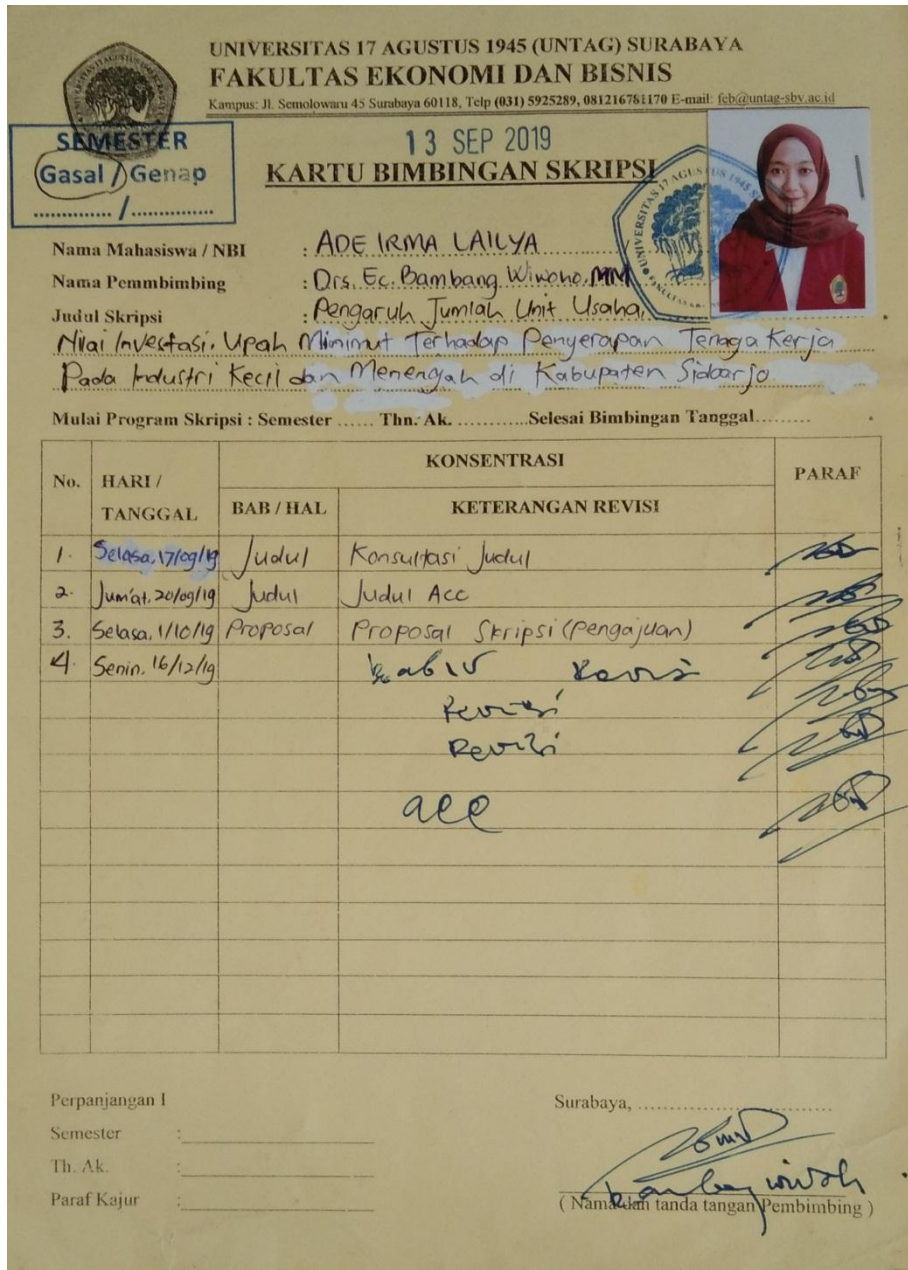 UNIVERSITAS 17 AGUSTUS 1945 (UNTAG) SURABAYA
FAKULTAS EKONOMI DAN BISNIS
Kampus: Jl. Semolowaru 45 Surabaya 60118, Telp (031) 5925289, 081216781170 E-mail: feb@untag-sby.ac.id
SEMESTER
Gasal / Genap
............. / ..............
13 SEP 2019
KARTU BIMBINGAN SKRIPSI
Nama Mahasiswa / NBI : ADE IRMA LAILYA
Nama Pemmbimbing : Drs. Ec. Bambang Wiwoho, MM
Judul Skripsi : Pengaruh Jumlah Unit Usaha,
Nilai Investasi, Upah Minimut Terhadap Penyerapan Tenaga Kerja
Pada Industri Kecil dan Menengah di Kabupaten Sidoarjo
Mulai Program Skripsi : Semester ...... Thn. Ak. ............Selesai Bimbingan Tanggal.........
No. HARI / TANGGAL KONSENTRASI PARAF
BAB / HAL KETERANGAN REVISI
1. Selasa, 17/09/19 Judul Konsultasi Judul
2. Jum'at, 20/09/19 Judul Judul Acc
3. Selasa, 1/10/19 Proposal Proposal Skripsi (Pengajuan)
4. Senin, 16/12/19 bab IV Revisi
Revisi
Revisi
acc
Perpanjangan I
Surabaya, ..................................
Semester :
Th. Ak. :
Paraf Kajur :
( Nama dan tanda tangan Pembimbing )